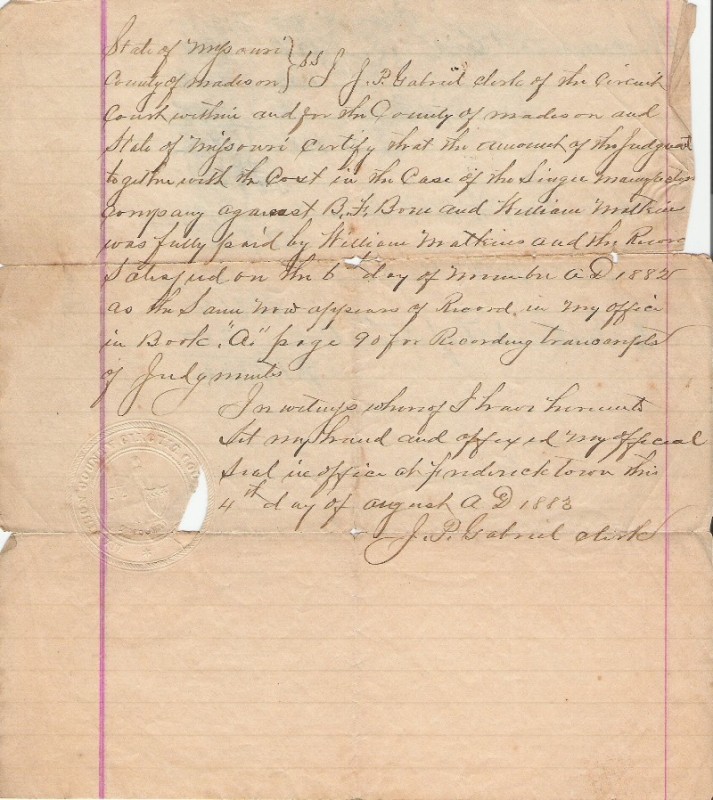 State of Missouri } ss
County of Madison } I J. P. Gabriel clerk of the Circuit
Court within and for the County of Madison and
State of Missouri certify that the amount of the Judgment
together with the Cost in the Case of the Singer Manufacturing
company against B. F. Bone and William Matkins
was fully paid by William Matkins and the Record
Satisfied on the 6th day of November A D 1882
as the Same Now appears of Record in My office
in Book "A" page 90 for Recording transcripts
of Judgments
In witness whereof I have hereunto
Set my hand and affixed My official
Seal in office at Fredericktown this
4th day of august A D 1883
J. P. Gabriel clerk